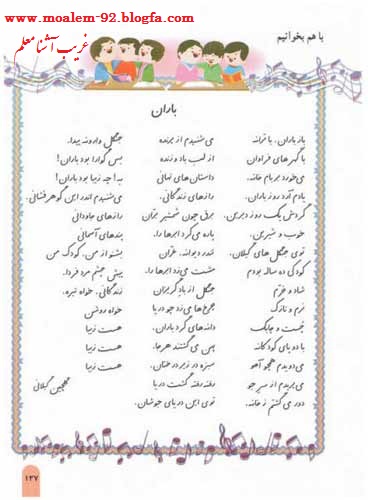 www.moalem-92.blogfa.com
غریب آشنا معلم
با هم بخوانیم
باران
باز باران، با ترانه
با گهرهای فراوان
می‌خورد بر بام خانه.
یادم آرد روز باران.
گردش یک روز دیرین.
خوب و شیرین.
توی جنگل‌های گیلان.
کودکی ده ساله بودم
شاد و خرّم
نرم و نازک
چست و چابک
با دو پای کودکانه
می‌دویدم همچو آهو
می‌پریدم از سر جو
دور می‌گشتم ز خانه.
می‌شنیدم از پرنده
از لب باد وزنده
داستان‌های نهانی
رازهای زندگانی.
برق چون شمشیر برّان
پاره می‌کرد ابرها را.
تندر دیوانه، غرّان
مشت می‌زد ابرها را.
جنگل از باد گریزان
چرخ‌ها می‌زد چو دریا
دانه‌های گرد باران.
پهن می‌گشتند هر جا.
سبزه در زیر درختان.
رفته رفته گشت دریا
توی این دریای جوشان.
جنگل وارونه پیدا.
بس گوارا بود باران!
به! چه زیبا بود باران!
می‌شنیدم اندر این گوهر فشانی.
رازهای جاودانی
پندهای آسمانی
بشنو از من، کودک من
پیش چشم مرد فردا.
زندگانی، خواه تیره.
خواه روشن
هست زیبا
هست زیبا
هست زیبا
گلچین گیلانی
۱۲۷